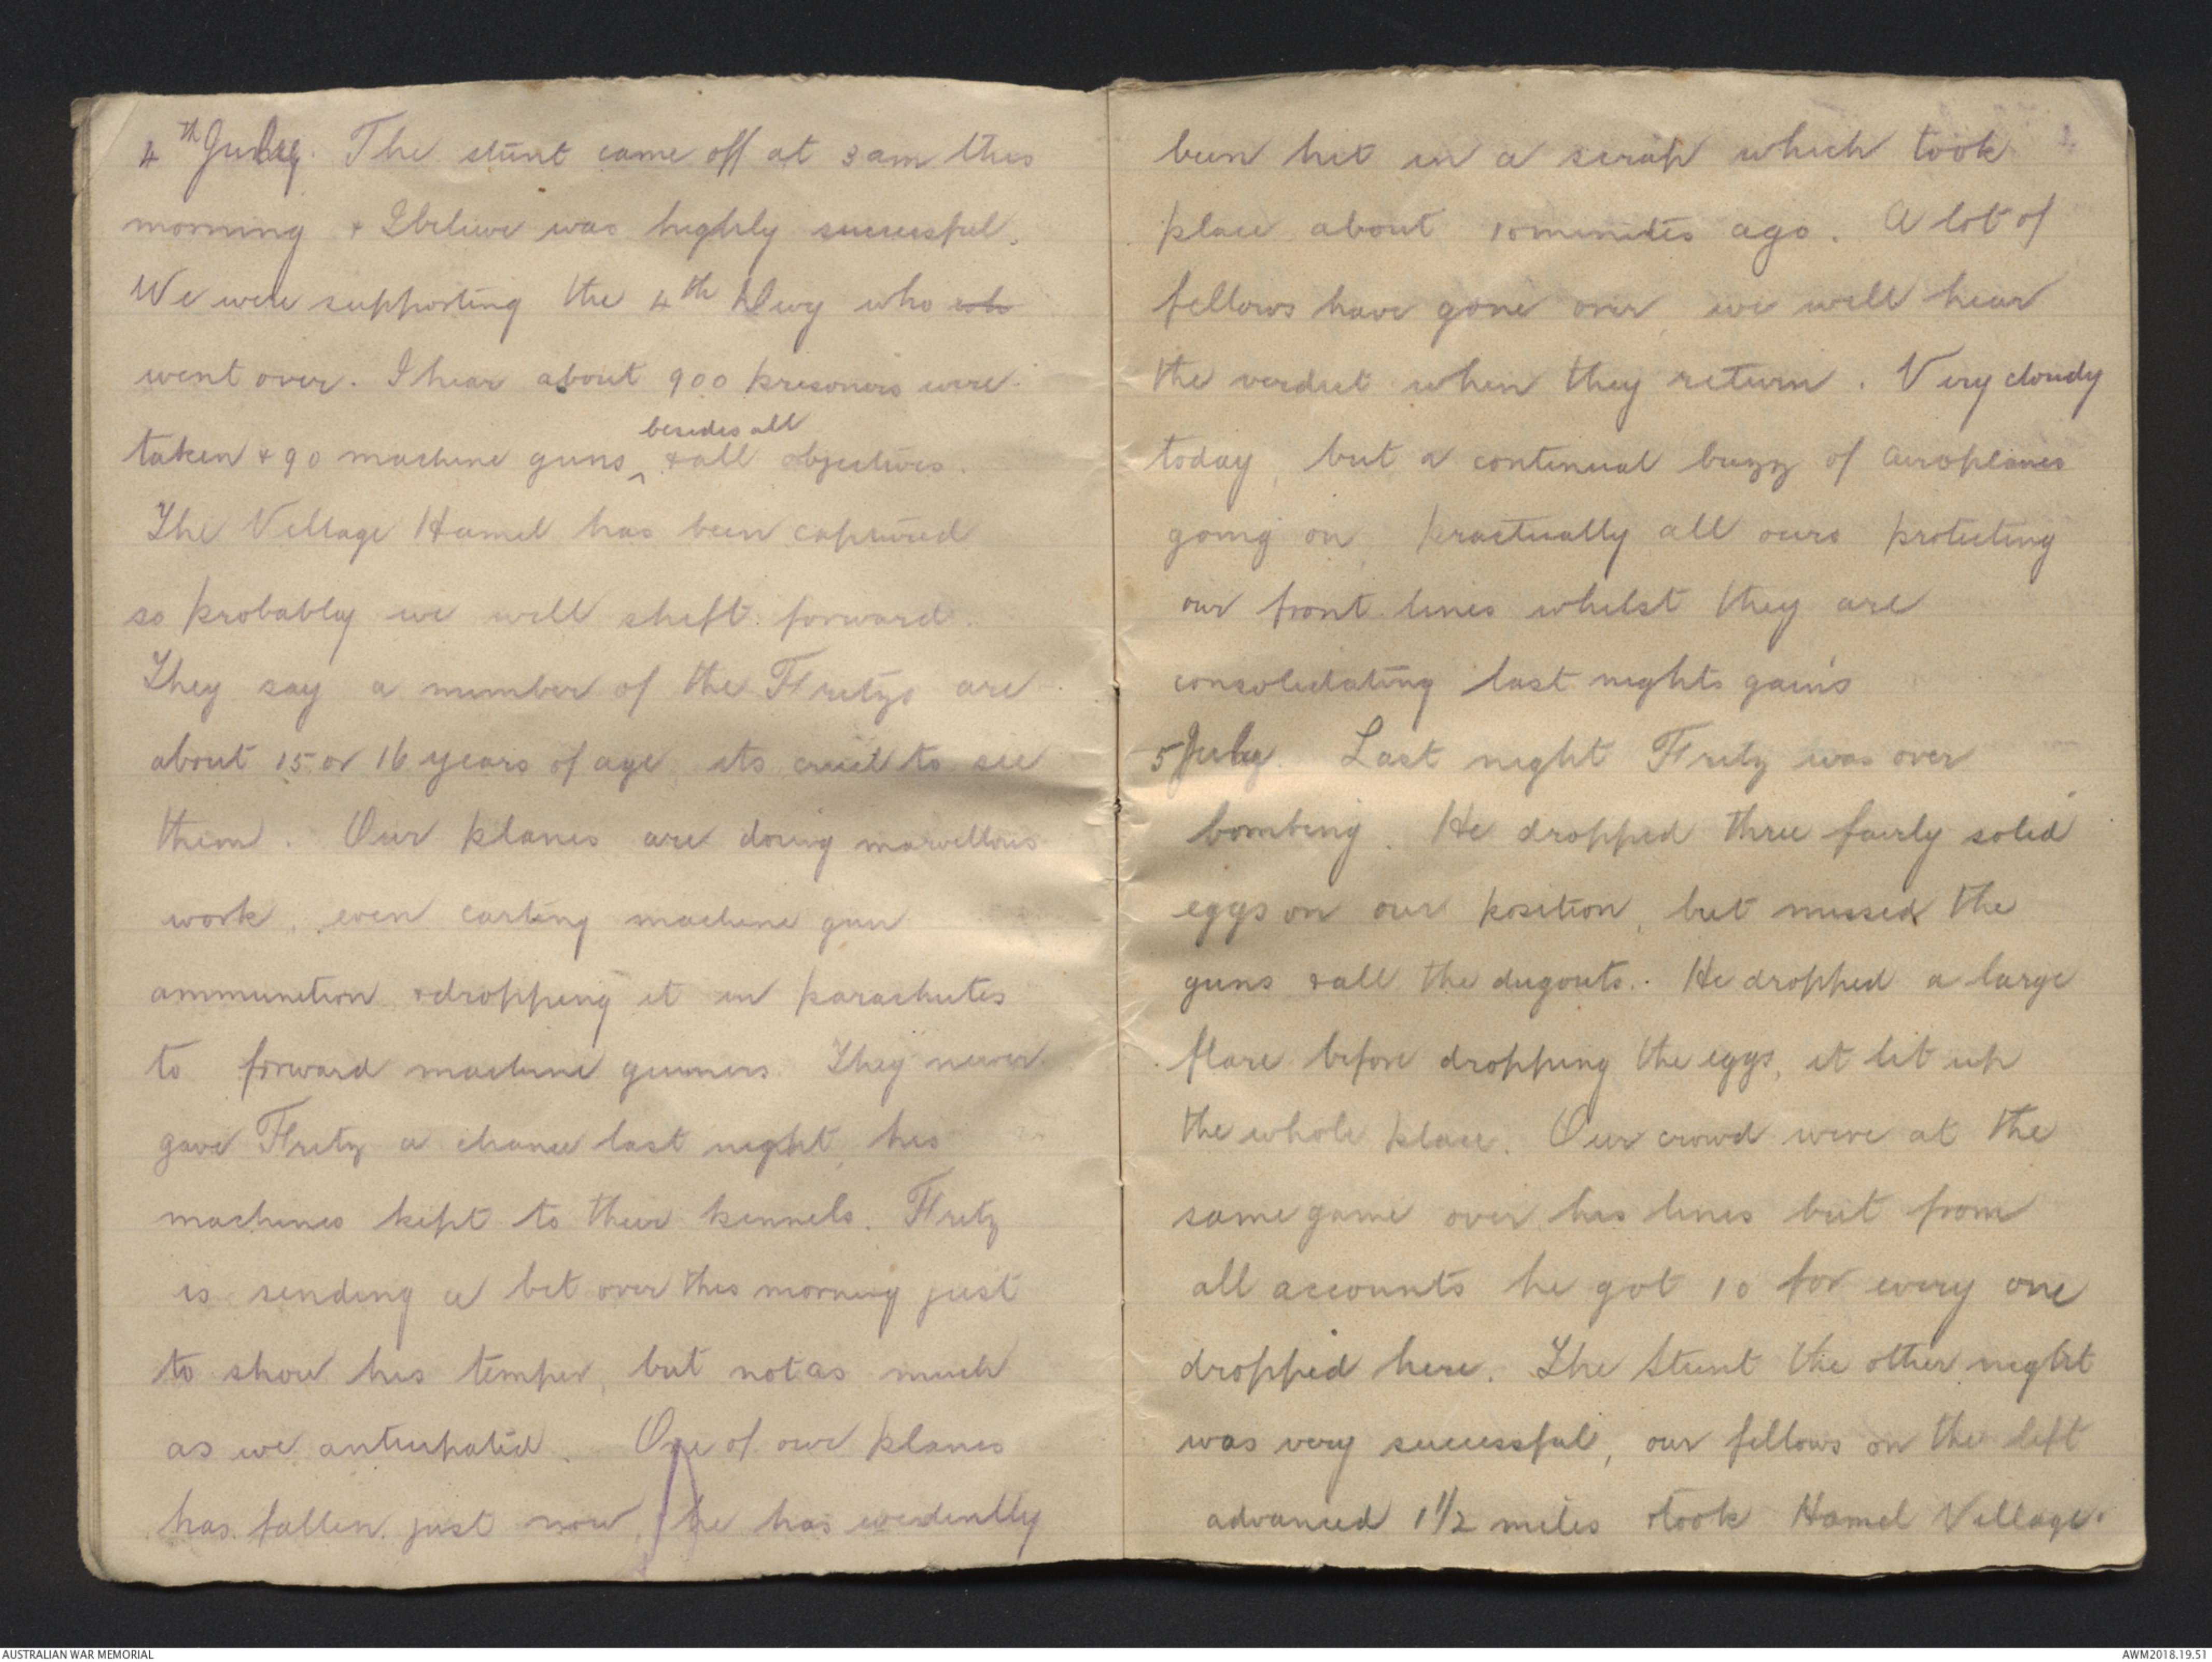 4th July. The stunt came off at 3 am this
morning & I believe was highly successful.
We were supporting the 4th Divy who wh
went over. I hear about 900 prisoners were
besides all
taken & 90 machine guns ^ & all objectives.
The Village Hamel has been captured
so probably we will shift forward.
They say a number of the Fritzs are
about 15 or 16 years of age, its cruel to see
them. Our planes are doing marvellous
work, even carting machine gun
ammunition & dropping it in parachutes
to forward machine gunners. They never
gave Fritz a chance last night, his
machines kept to their kennels. Fritz
is sending a bit over this morning just
to show his temper, but not as much
as we anticipated. One of our planes
has fallen just now, he has evidently
been hit in a scrap which took
place about 10 minutes ago. A lot of
fellows have gone over, we will hear
the verdict when they return. Very cloudy
today, but a continual buzz of aeroplanes
going on, practically all ours protecting
our front lines whilst they are
consolidating last nights gains
5 July. Last night Fritz was over
bombing. He dropped three fairly solid
eggs on our position, but missed the
guns & all the dugouts. He dropped a large
flare before dropping the eggs, it lit up
the whole place. Our crowd were at the
same game over his lines but from
all accounts he got 10 for every one
dropped here. The Stunt the other night
was very successful, our fellows on the left
advanced 1 1/2 miles & took Hamel Village.
AUSTRALIAN WAR MEMORIAL
AWM2018.19.51